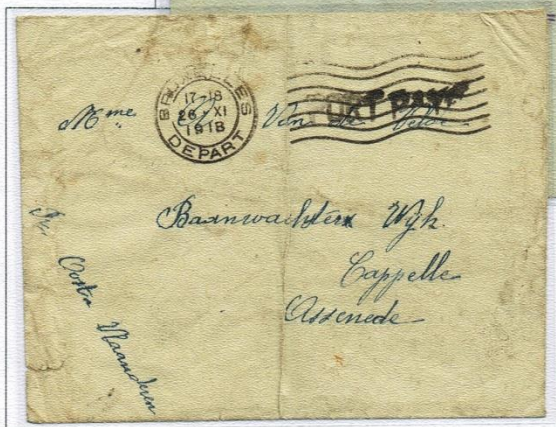 BRUXELLES
17-18
26 XI
1918
DEPART
PORT PAYÉ
Mme Van de Velde
Baanwachter Wyk.
Cappelle
Assenede
Oost Vlaanderen